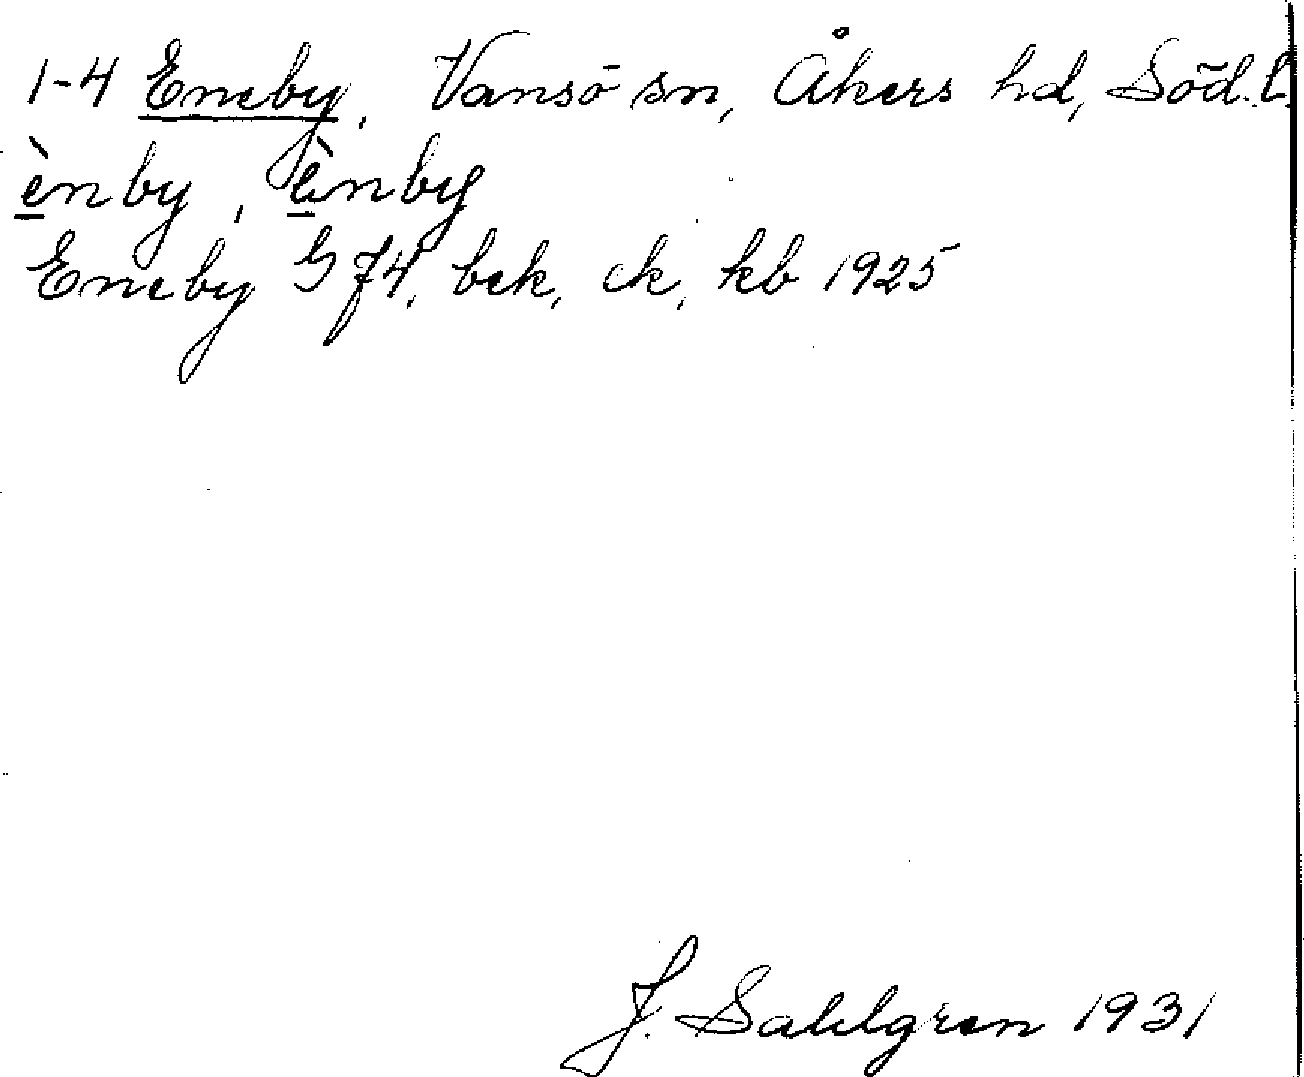 1-4 Eneby, Vansö sn, Åkers hd, Söd. l.
ènby, ènby
Eneby G 74, bek, ek, kb 1925
J. Sahlgren 1931